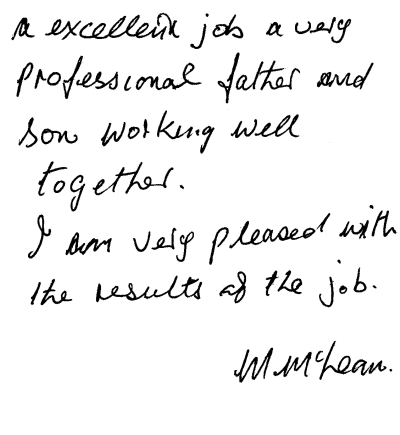 a excellent job a very
professional father and
son working well
together.
I am very pleased with
the results of the job.
M. McLean.